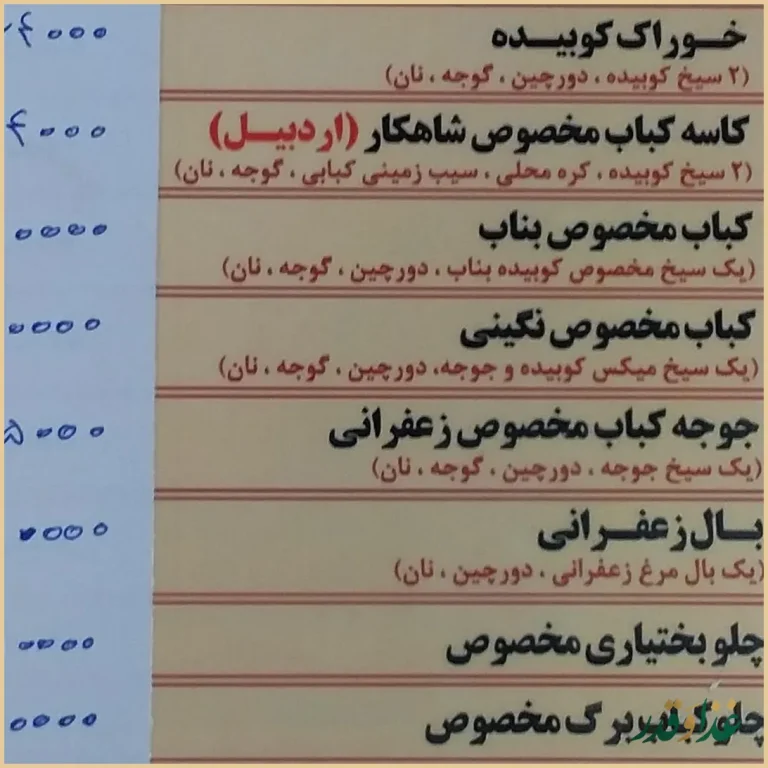 خوراک کوبیده
(۲ سیخ کوبیده ، دورچین ، گوجه ، نان)
کاسه کباب مخصوص شاهکار (اردبیل)
(۲ سیخ کوبیده ، کره محلی ، سیب زمینی کبابی ، گوجه ، نان)
کباب مخصوص بناب
۰۰۰۰
(یک سیخ مخصوص کوبیده بناب ، دورچین ، گوجه ، نان)
کباب مخصوص نگینی
۰۰۰۰
(یک سیخ میکس کوبیده و جوجه، دورچین ، گوجه ، نان)
جوجه کباب مخصوص زعفرانی
۵۰۰۰
(یک سیخ جوجه ، دورچین ، گوجه ، نان)
بال زعفرانی
۰۰۰۰
(یک بال مرغ زعفرانی ، دورچین ، نان)
چلو بختیاری مخصوص
۰۰۰۰
چلوکباب برگ مخصوص
۰۰۰۰